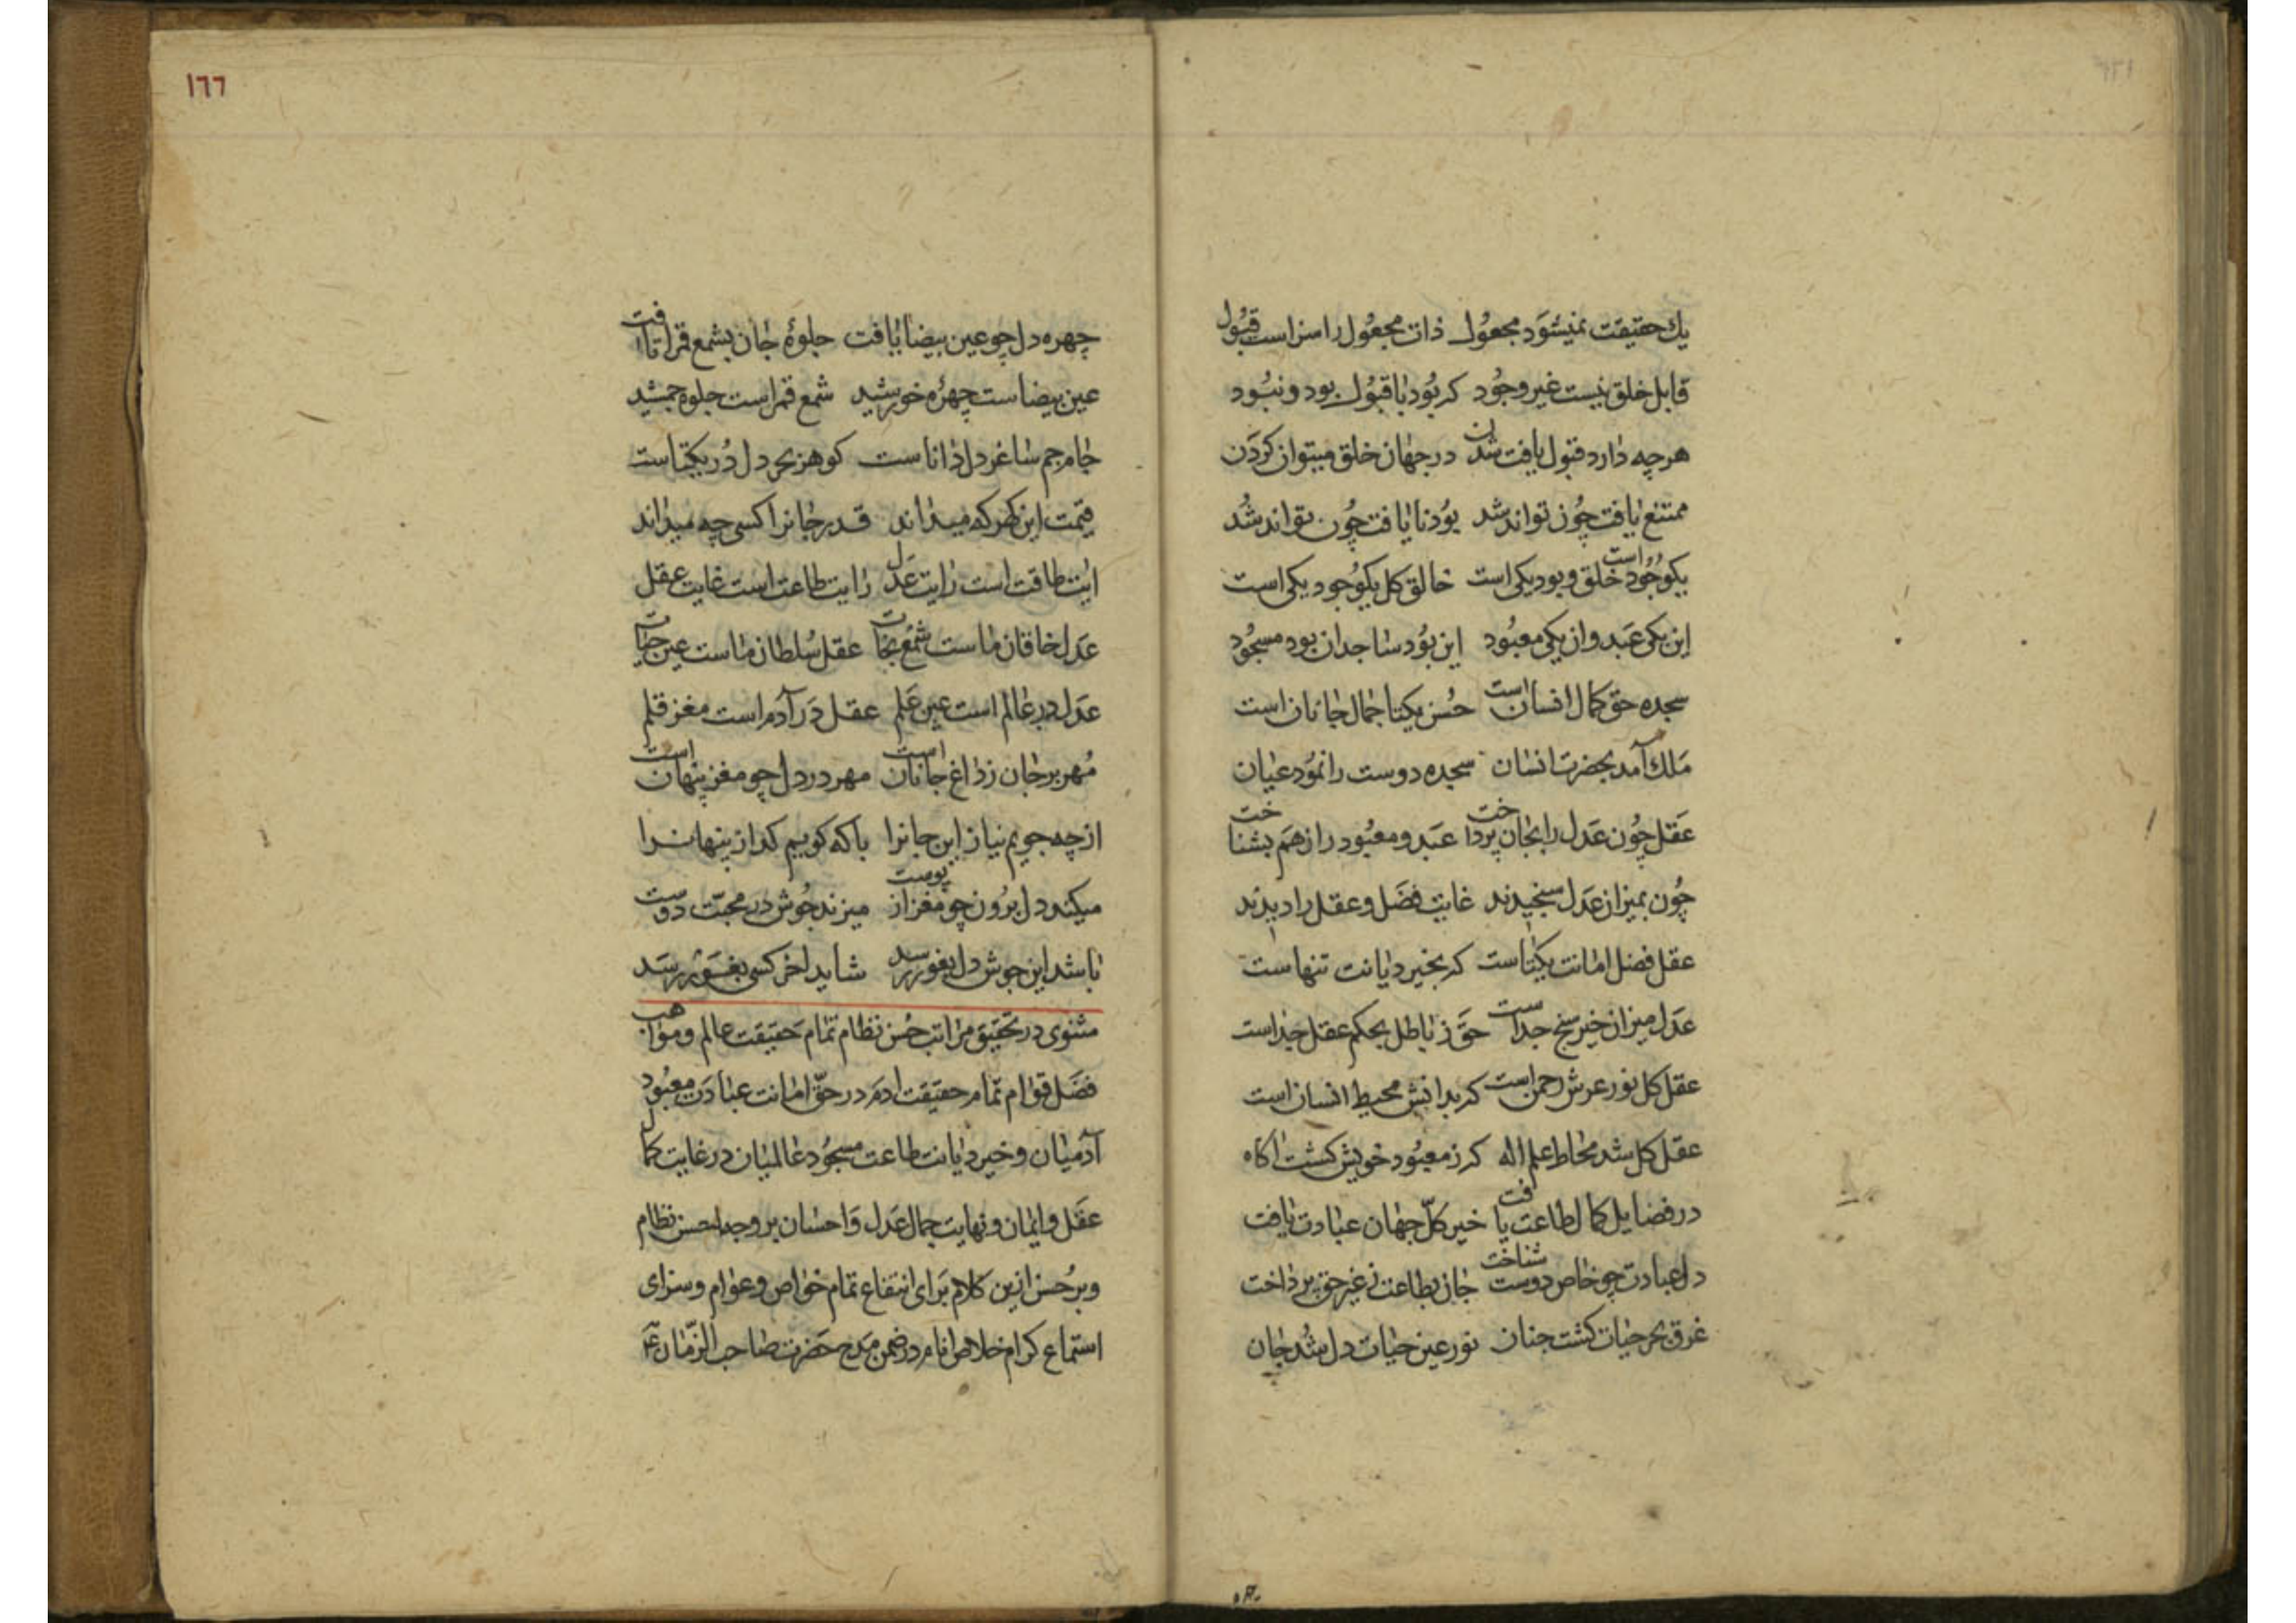 يك حقيقت نميشود مجعول ذات مجعول را سزاست قبول
قابل خلق نيست غير وجود كر بود با قبول بود و نبود
هرچه دارد قبول يافت شدن در جهان خلق ميتوان كردن
ممتنع يافت چون تواند شد بود نايافت چون تواند شد
يكوجود است خلق و بود يكى است خالق كل يكوجود يكى است
اين يكى عبد وان يكى معبود اين بود ساجد ان بود مسجود
سجده حق كمال انسان است حسن يكتا جمال جانان است
ملك آمد بحضرت انسان سجده دوست را نمود عيان
عقل چون عدل را بجان پرداخت عبد و معبود را زهم بشناخت
چون بميزان عدل سنجيدند غايت فضل و عقل را ديدند
عقل فضل امانت يكتاست كر بخير ديانت تنهاست
عدل ميزان خير سنج جداست حق ز باطل بحكم عقل جداست
عقل كل نور عرش رحمن است كر بدانش محيط انسان است
عقل كل شد محاط علم اله كر ز معبود خويش كشت اكاه
در فضايل كمال طاعت يافت خير كل جهان عبادت يافت
دل عبادت چو خاص دوست شناخت جان بطاعت ز غير حق پرداخت
غرق بحر حيات كشت جنان نور عين حيات دل شد جان
١٦٦
چهره دل چو عين بيضا يافت جلوۀ جان بشمع قمرا تافت
عين بيضاست چهرۀ خورشيد شمع قمراست جلوه جمشيد
جام جم ساغر دل داناست كوهر بحر دل در يكتاست
قيمت اين كهر كه ميداند قدر جانرا كسى چه ميداند
ايت طاقت است رايت عدل رايت طاعت است غايت عقل
عدل خاقان ماست شمع نجات عقل سلطان ماست عين حيات
عدل در عالم است عين علم عقل در آدم است مغز قلم
مهر بر جان ز داغ جانان است مهر در دل چو مغز پنهان است
از چه جويم نياز اين جانرا با كه كويم كداز پنهانرا
ميكند دل برون چو مغز از پوست ميزند جوش در محبت دوست
باشد اين جوش دل بغور رسد شايد اخر كسى بغور رسد
مثنوى در تحقيق مراتب حسن نظام تمام حقيقت عالم و مواهب
فضل قوام تمام حقيقت ادم در حق امانت عبادت معبود
آدميان و خير ديانت طاعت مسجود عالميان در غايت كمال
عقل و ايمان و نهايت جمال عدل و احسان بر وجه احسن نظام
و بر حسن ازين كلام براى انتفاع تمام خواص و عوام و سزاى
استماع كرام خلاص انام در ضمن مدح حضرت صاحب الزمان ع